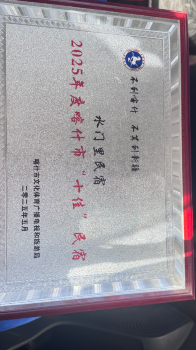 不到喀什 不算到新疆
水门里民宿
2025年度喀什市“十佳”民宿
喀什市文化体育广播电视和旅游局
二〇二五年五月